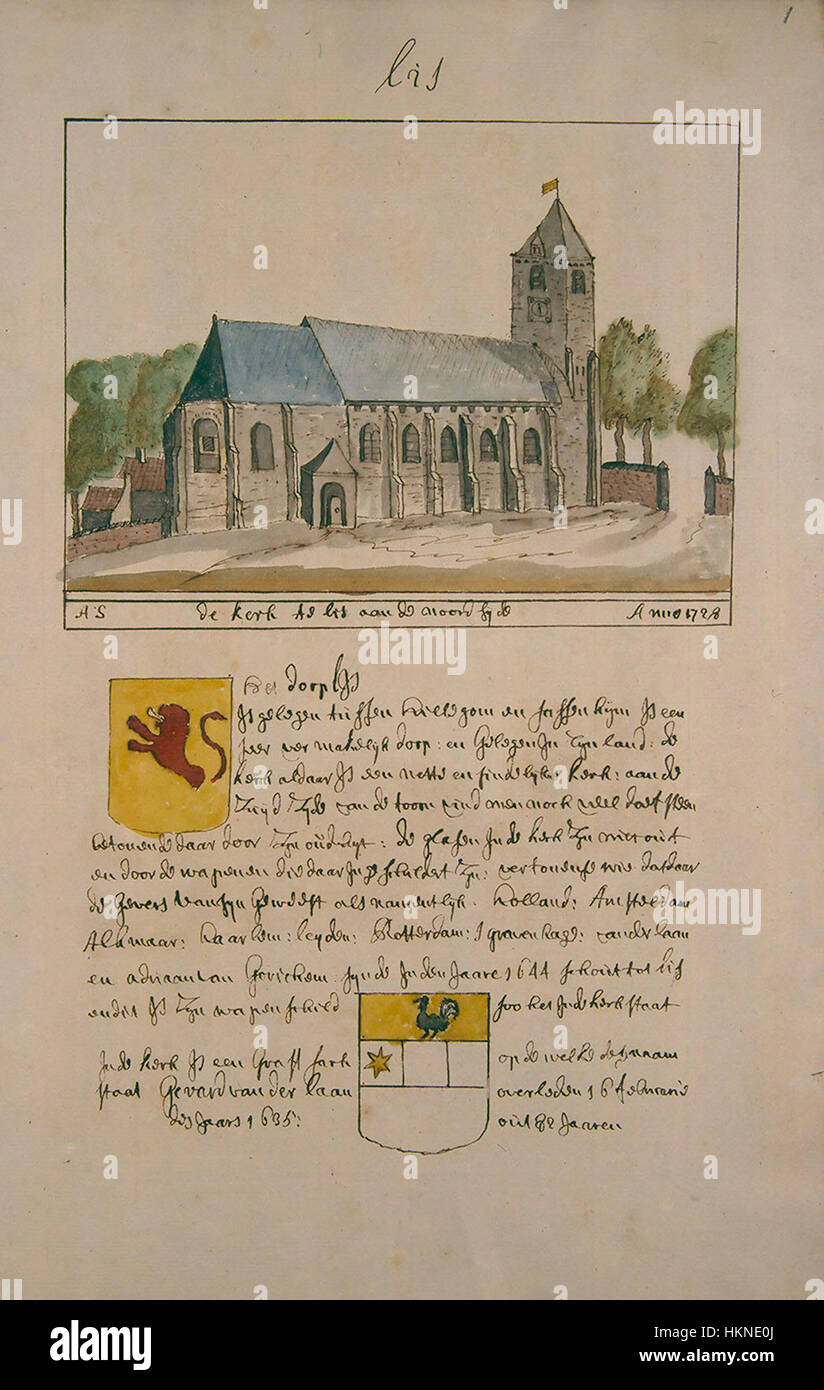 1
lis
AS de kerk te lis aan de noord zyde Anno 1728
Het dorp lis
Is gelegen tussen hillegom en sassenhijm Is een
seer vermakelijk dorp: en Gelegen In Rynland: de
kerk aldaar Is een nette en sindelyke kerk: aan de
Zuijd Zyde van de toorn vind men noch veel dofsteen
betonende daar door Zyn oudheyt: de glasen In de kerk Zyn niet out
en door de wapenen die daar In geschildert Zyn: vertonense wie dat daar
de Gevers van syn Geweest als namentlijk. Holland: Amsteldam
Alkmaar: haarlem: leyden: Rotterdam: sgravenhage: vander laan
en adriaan van Gorichem synde In den Jaare 1644 schout tot lis
en dit Is Zyn wapen schild soo het In de kerk staat
In de kerk Is een Graft sark op de welke de naam
staat Gerard van der laan overleden 16 februarie
des Jaars 1635: out 82 Jaaren
alamy
alamy
Image ID: HKNE0J
www.alamy.com